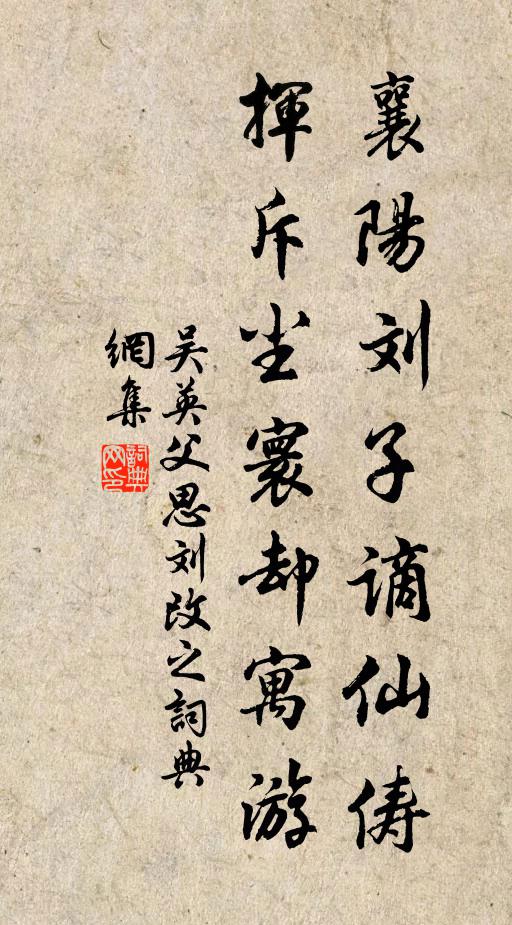 襄陽刘子謫仙俦
揮斥尘寰却寓游
吴英父思刘改之詞典
網集
詞典
网印